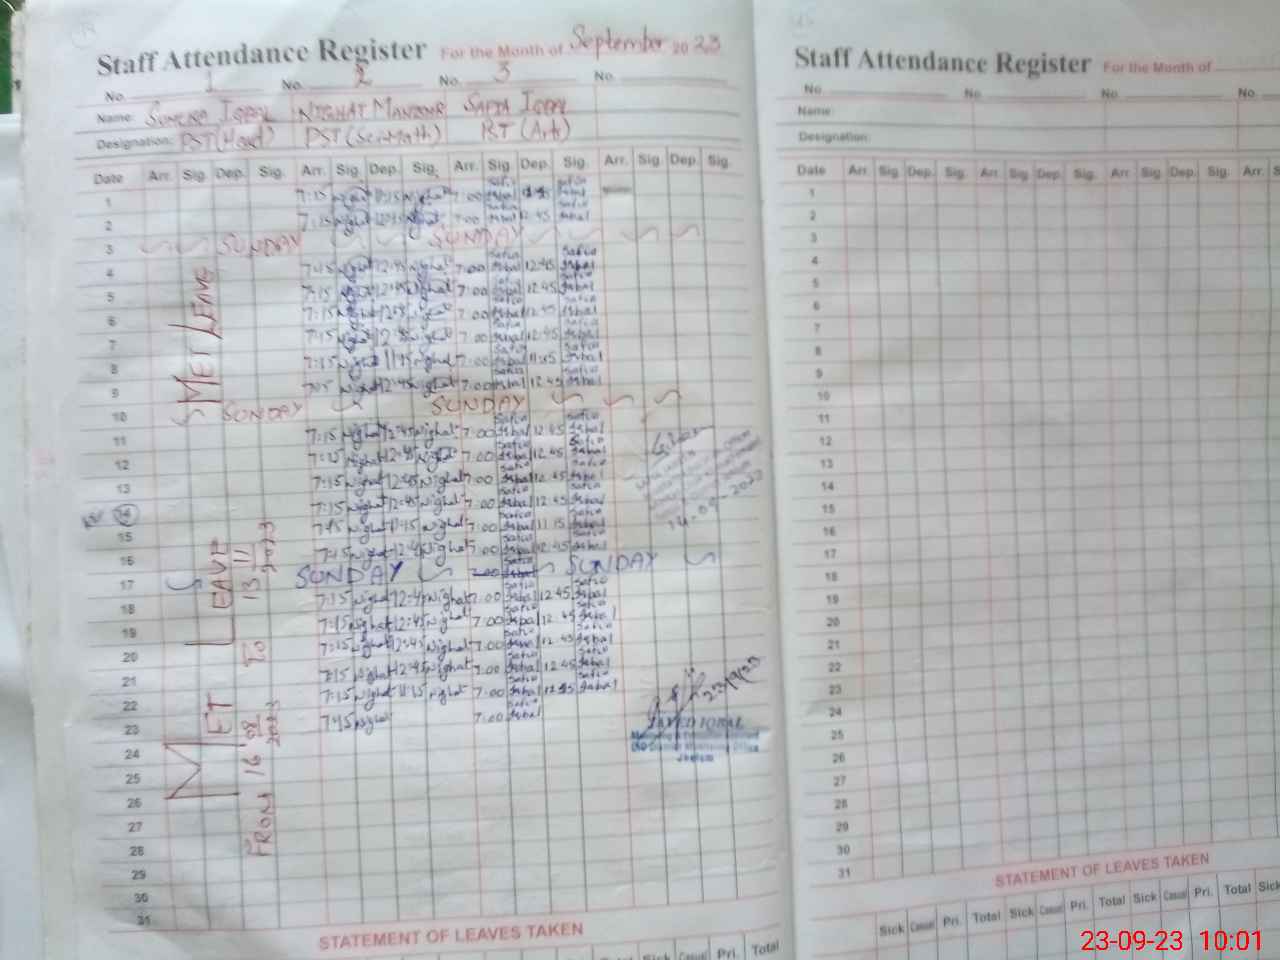 Staff Attendance Register For the Month of September 2023
No. 1 No. 2 No. 3 No.
Name: SUMERA IQBAL NIGHAT MANZOOR SAFIA IQBAL
Designation: PST(Head) PST(Sci-Math) PST (Arts)
Date Arr. Sig. Dep. Sig. Arr. Sig. Dep. Sig. Arr. Sig. Dep. Sig. Arr. Sig. Dep. Sig.
1 7:15 Nighat 11:15 Nighat 7:00 Safia Iqbal Safia Iqbal
2 7:15 Nighat 12:45 Nighat 7:00 Safia Iqbal 12:45 Safia Iqbal
3 SUNDAY SUNDAY
4 7:15 Nighat 12:45 Nighat 7:00 Safia Iqbal 12:45 Safia Iqbal
5 7:15 Nighat 12:45 Nighat 7:00 Safia Iqbal 12:45 Safia Iqbal
6 7:15 Nighat Nighat 7:00 Safia Iqbal 12:45 Safia Iqbal
7 7:15 Nighat Nighat 7:00 Safia Iqbal 12:45 Safia Iqbal
8 7:15 Nighat 11:15 Nighat 7:00 Safia Iqbal Safia Iqbal
9 Nighat 12:45 Nighat 7:00 Safia Iqbal 12:45 Safia Iqbal
10 SUNDAY SUNDAY
11 7:15 Nighat 12:45 Nighat 7:00 Safia Iqbal 12:45 Safia Iqbal
12 7:15 Nighat 12:45 Nighat 7:00 Safia Iqbal 12:45 Safia Iqbal
13 7:15 Nighat 12:45 Nighat 7:00 Safia Iqbal 12:45 Safia Iqbal
14 7:15 Nighat 12:45 Nighat 7:00 Safia Iqbal 12:45 Safia Iqbal
15 7:15 Nighat 11:15 Nighat 7:00 Safia Iqbal 11:15 Safia Iqbal
16 7:15 Nighat 12:45 Nighat 7:00 Safia Iqbal 12:45 Safia Iqbal
17 SUNDAY SUNDAY
18 7:15 Nighat 12:45 Nighat 7:00 Safia Iqbal 12:45 Safia Iqbal
19 7:15 Nighat 12:45 Nighat 7:00 Safia Iqbal 12:45 Safia Iqbal
20 7:15 Nighat 12:45 Nighat 7:00 Safia Iqbal 12:45 Safia Iqbal
21 7:15 Nighat 12:45 Nighat 7:00 Safia Iqbal 12:45 Safia Iqbal
22 7:15 Nighat 11:15 Nighat 7:00 Safia Iqbal Safia Iqbal
23 Nighat 7:00 Safia Iqbal
24
25
26
27
28
29
30
31
MET LEAVE
MET LEAVE
FROM 16 08 2023 TO 13 11 2023
14-09-2023
23/9/23
JAVED IQBAL
District Monitoring Office
Jhelum
STATEMENT OF LEAVES TAKEN
Sick Casual Pri. Total
Staff Attendance Register For the Month of
No. No. No. No.
Name:
Designation:
Date Arr. Sig. Dep. Sig. Arr. Sig. Dep. Sig. Arr. Sig. Dep. Sig. Arr.
1
2
3
4
5
6
7
8
9
10
11
12
13
14
15
16
17
18
19
20
21
22
23
24
25
26
27
28
29
30
31
STATEMENT OF LEAVES TAKEN
Sick Casual Pri. Total Sick Casual Pri. Total Sick Casual Pri. Total Sick
23-09-23 10:01